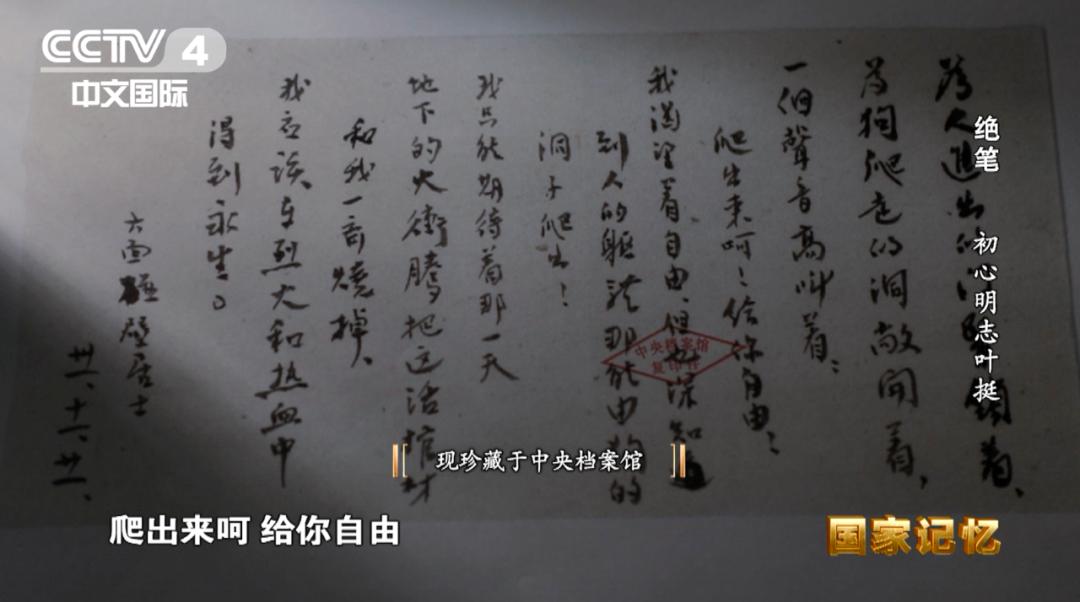 CCTV 4
中文国际
绝笔 初心明志叶挺
為人進出的门紧锁着、
為狗爬走的洞敞開着、
一個聲音高叫着：
爬出来呵！给你自由！
我渴望着自由、但也深知
到人的躯體那能由狗的
洞子爬出！
我只能期待着那一天
地下的火衝騰把这活棺材
和我一齊燒掉、
我应该在烈火和热血中
得到永生。
六面碰壁居士
卅一、十一、廿一、
中央档案馆
复印件
现珍藏于中央档案馆
爬出来呵 给你自由
国家记忆